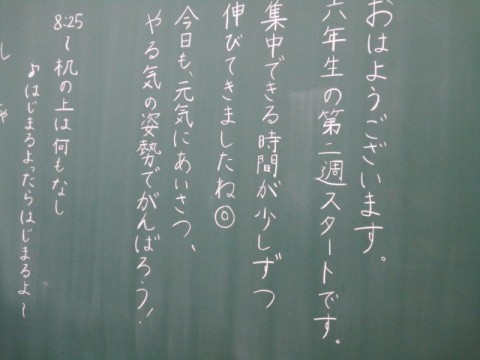 おはようございます。
六年生の第二週スタートです。
集中できる時間が少しずつ
伸びてきましたね◎
今日も、元気にあいさつ、
やる気の姿勢でがんばろう!
8:25〜机の上は何もなし
♪はじまるよったらはじまるよ〜